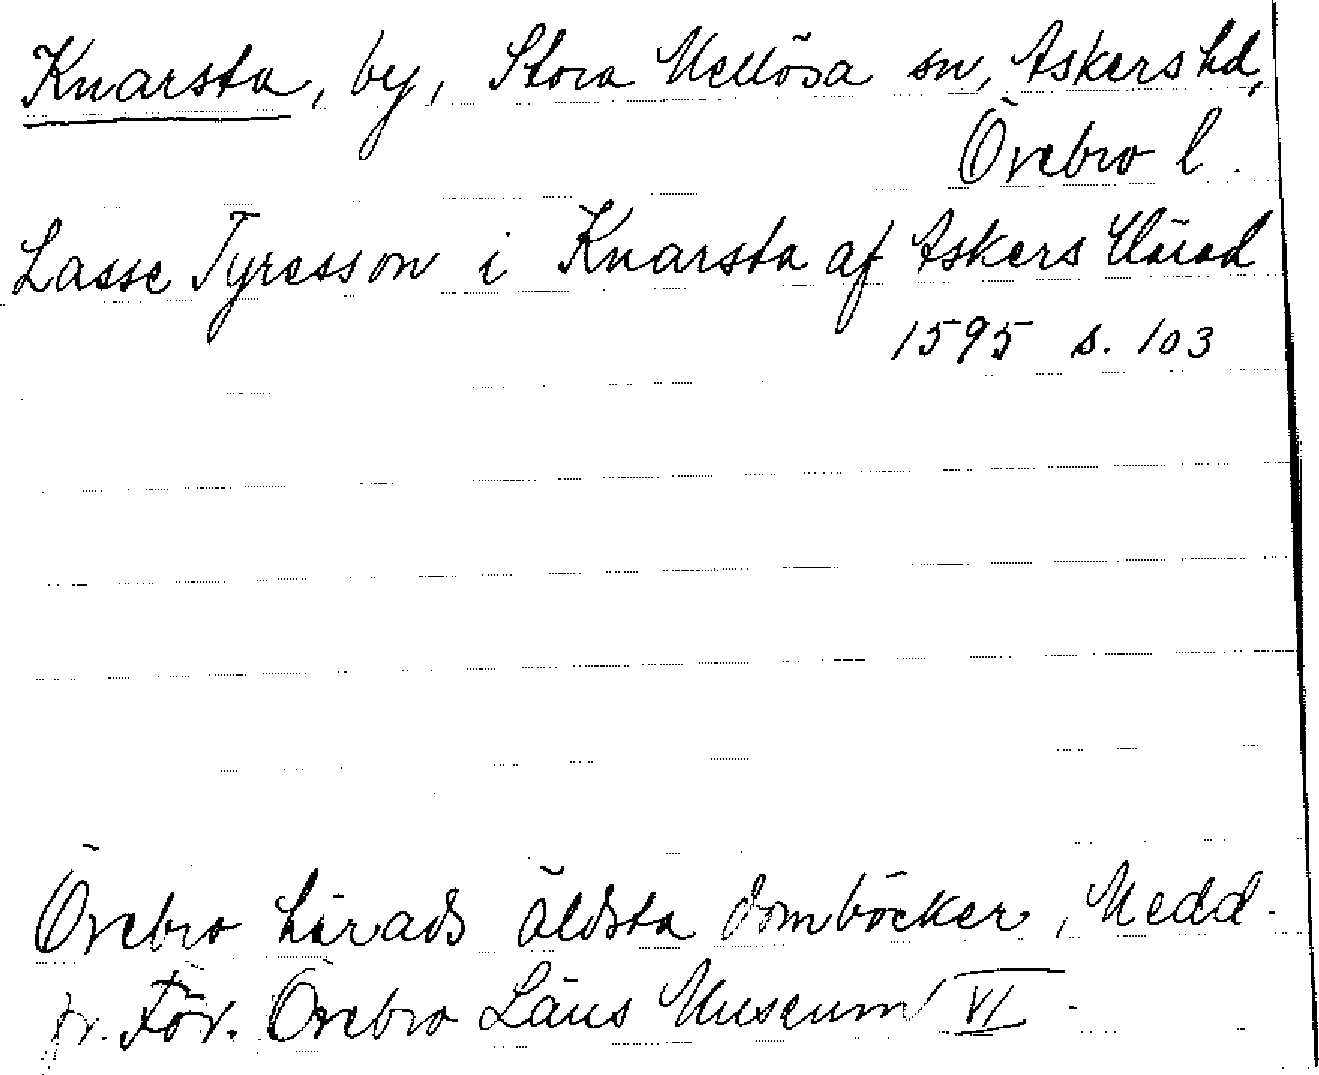 Knarsta, by, Stora Mellösa sn, Askers hd,
Örebro l.
Lasse Tyresson i Knarsta af Askers Härad
1595 s. 103
Örebro härads äldsta domböcker, Medd.
fr. För. Örebro Läns Museum VI.